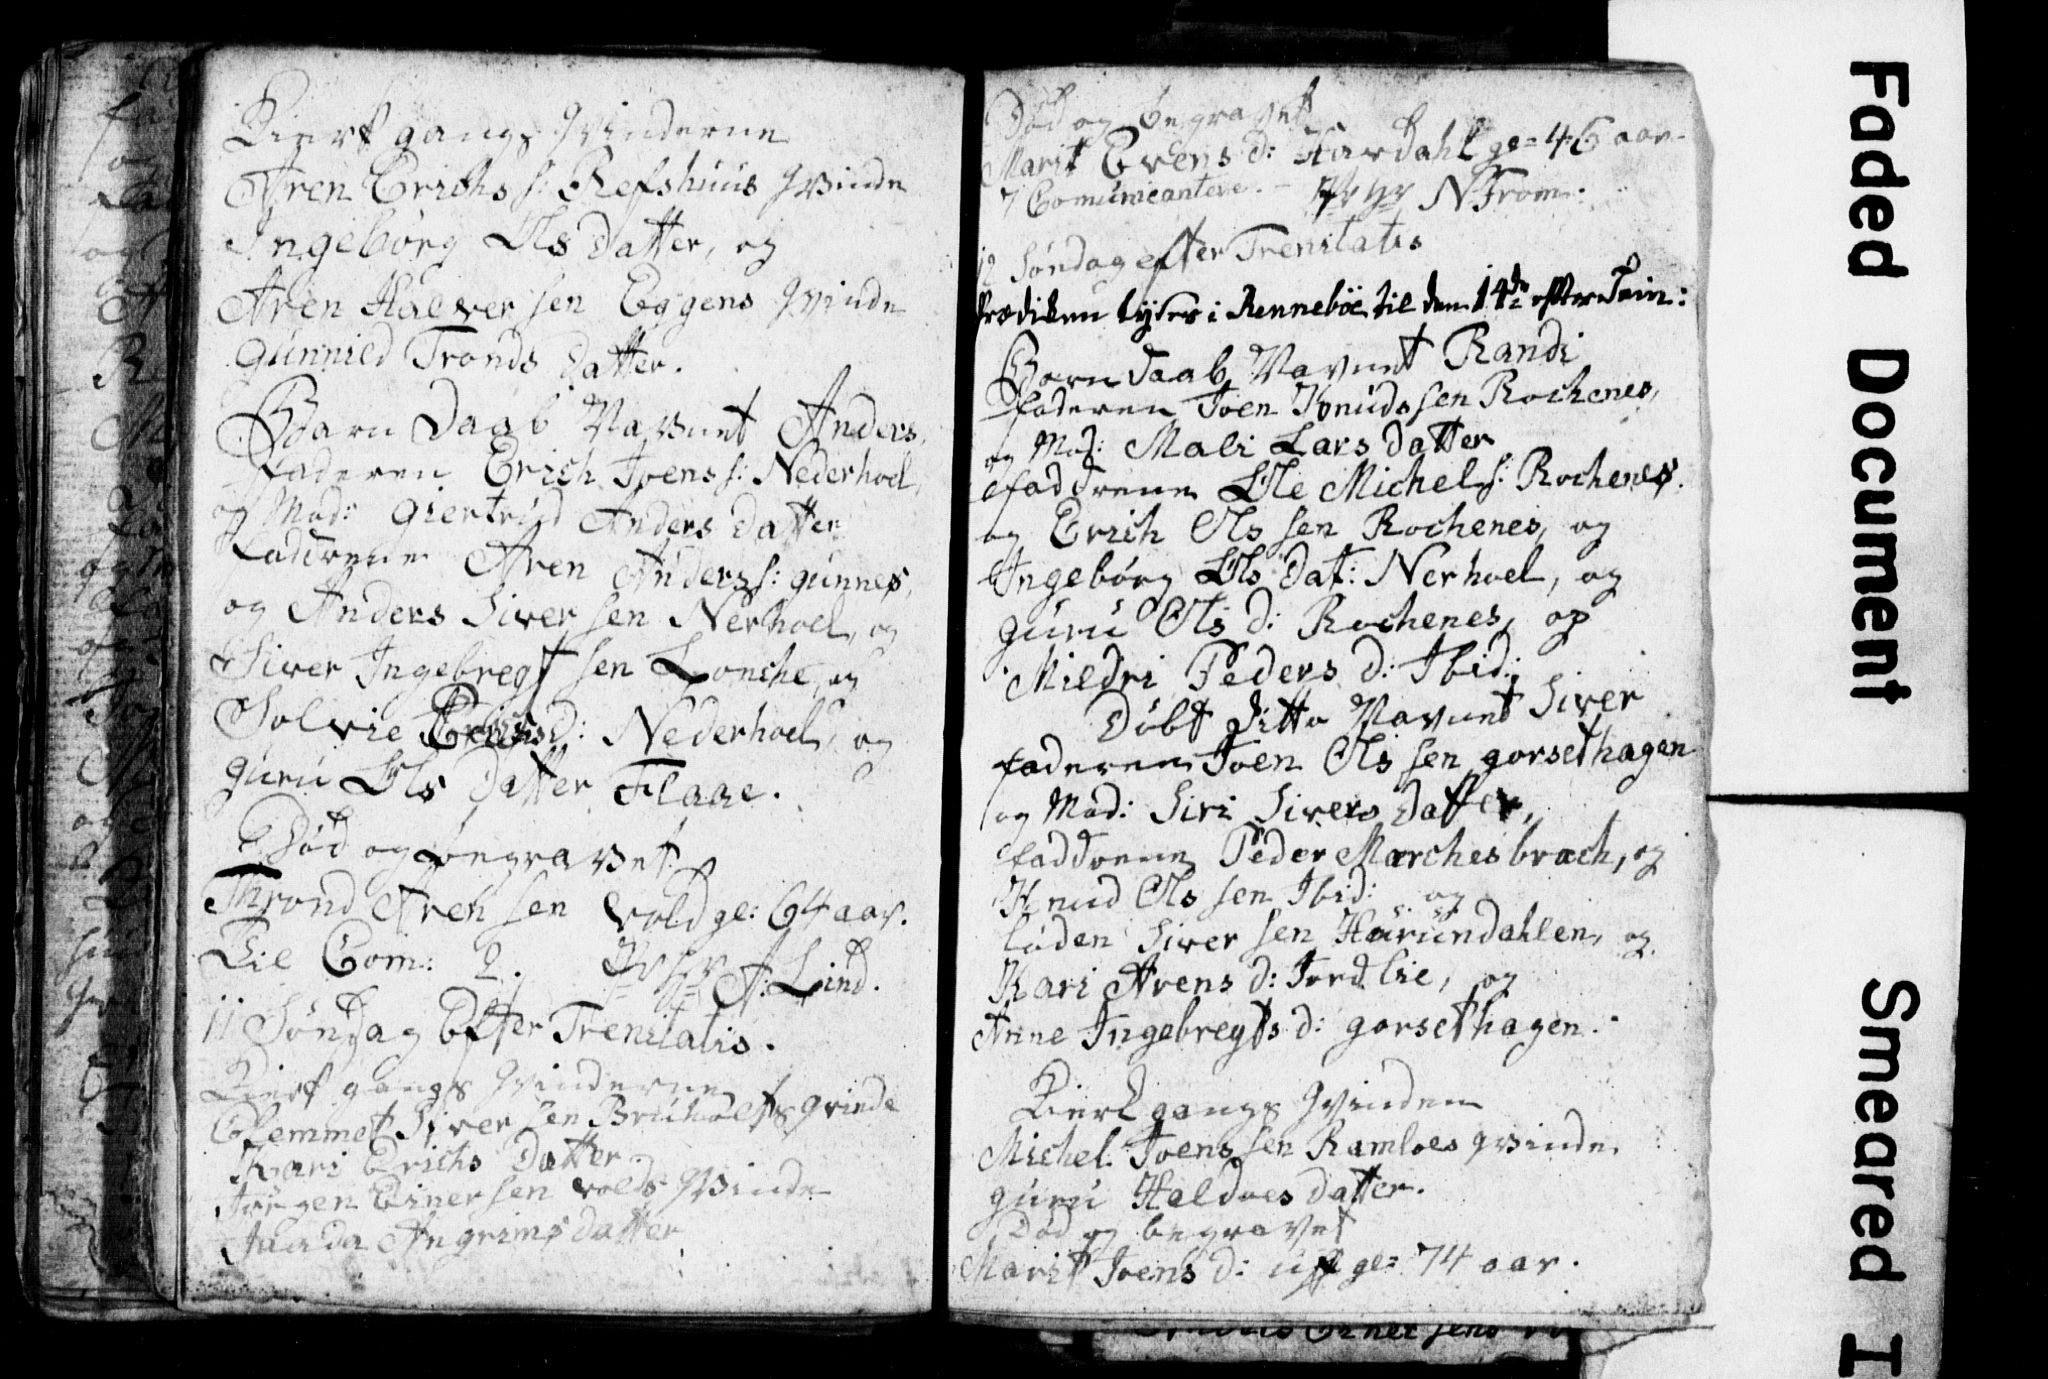 Kierkgangs Qvinderne
Aren Erichs s: Refshuus Qvinde
Ingebórg Ols Datter, og
Aren Halversen Eggens Qvinde
Gunnild Tronds Datter.
Barn Daab Navnet Anders,
Faderen Erich Joens s: Nederhoel,
og Mod: Giertrud Anders Datter
Faderene Aren Anders s: Gunnes,
og Anders Siversen Nerhoel, og
Siver Ingebregtsen Lonche, og
Solvie d: Nederhoel, og
Guru Ols Datter Flaae.
Død og begravet
Thrond Arensen Vold ge: 64 aar.
Til Com: 2. A: Lind.
11 Søndag Efter Trenitatis.
Kierkgangs Qvinderne
Clemmet Siversen Bruholts Qvinde
Kari Erichs Datter.
Jørgen Einersen Volds Qvinde
Ingrims Datter
Død og begravet
Marit Evens d: Hardahl ge= 46 aar.
7 Comunicantere. - N From:
12 Søndag efter Trenitatis
Prædiken lyses i Rennebóe til dem 14de efter Trin:
Barn Daab Navnet Randi
Faderen Joen Knudssen Rochenes,
og Mod: Mali Lars Datter
Faddrene Ole Michels s: Rochenes.
og Erich Olssen Rochenes, og
Ingebórg Ols Dat: Nerhoel, og
Guru Ols d: Rochenes, og
Mildri Peders d: Ibid:
Dóbt Ditto Navnet Siver
Faderen Joen Olssen Gorsethagen
og Mod: Siri Sivers Datter,
Faddrene Peder Marchesbrach, og
Knud Olssen Ibid: og
Loden Siversen Haurundahlen, og
Kari Arens d: Jordlie, og
Anne Ingebregts d: Gorsethagen.
Kierkgangs Qvinden
Michel Joenssen Ramloes Qvinde
Guru Haldoes Datter.
Død og begravet
Marit Joens d: uff ge: 74 aar.
Faded Document
Smeared I